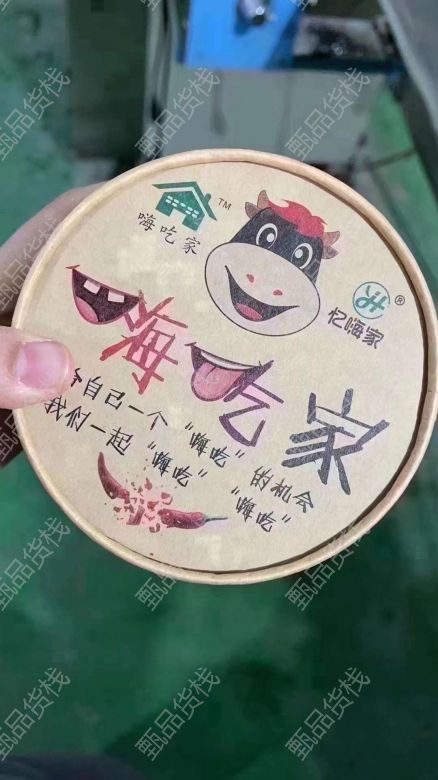 甄品货栈
嗨吃家
TM
忆嗨家
®
嗨吃家
给自己一个“嗨吃”的机会
我们一起“嗨吃”“嗨吃”
甄品货栈
甄品货栈
甄品货栈
甄品货栈
甄品货栈
甄品货栈
甄品货栈
甄品货栈